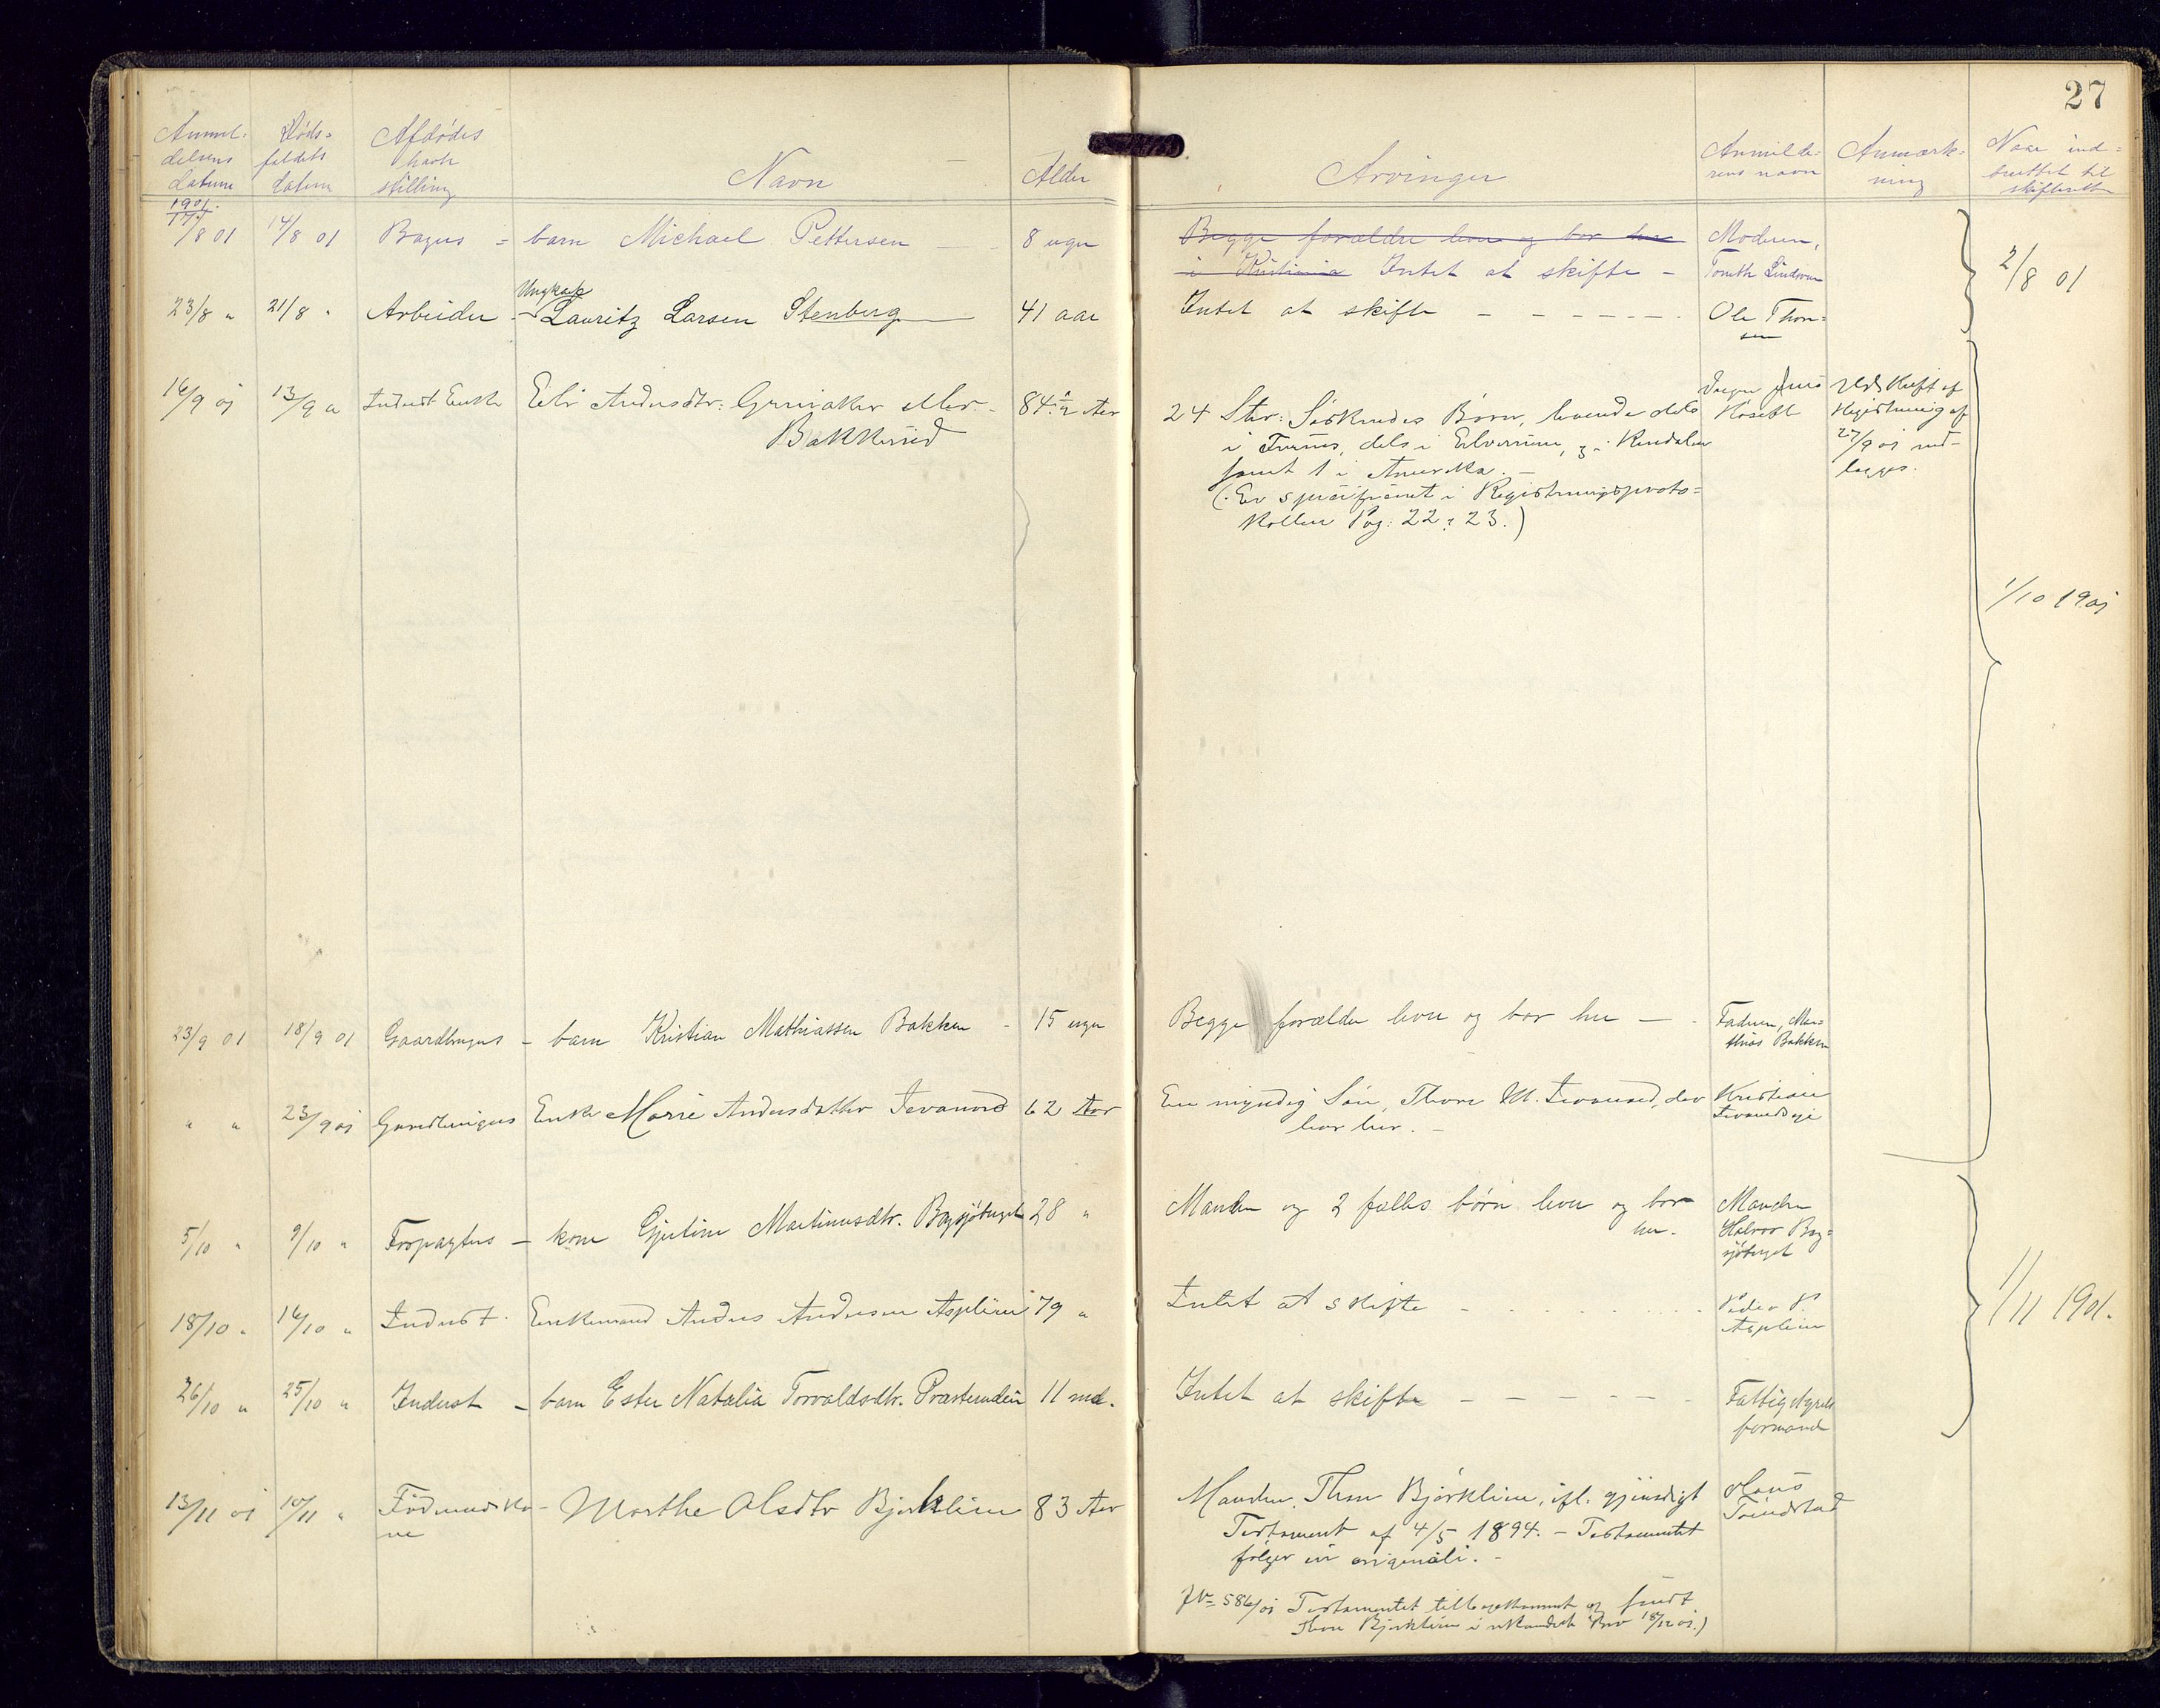 27
Anmel- Døds- Afdødes
delsens faldets havte Navn Alder Arvinger Anmelde- Anmærk- Naar ind-
datum datum stilling rens navn ning berettet til
skifteretten
1901
17/8 01 14/8 01 Bagers - barn Michael Pettersen - 8 uger Begge forældre lever og bor her Moderen,
i Kristiania Intet at skifte - 2/8 01
Ungkarl
23/8 " 21/8 " Arbeider - Lauritz Larsen Stenberg 41 aar Intet at skifte - - - - - - Ole Thor-
sen
16/9 01 13/9 " Inderst Enke Eli Andersdtr: Grinaker eller Bakkerud 84 1/2 Aar
24 Stk: Søskendes Børn, boende dels
i Furnes, dels i Elverum, 3 i Rendalen
samt 1 i Amerika. -
(Er specificeret i Registreringsproto-
kollen Pag: 22 & 23.)
Udskrift af
Registrering af
27/9 01 ved-
lægges.
1/10 1901
23/9 01 18/9 01 Gaardbrugers - barn Kristian Mathiassen Bakken - 15 uger Begge forældre lever og bor her - Faderen, Ma-
thias Bakken
" " 23/9 01 Gaardbrugers Enke Marie Andersdatter Ievanord 62 Aar En myndig Søn, Thore M. Ievanord, der Kristian
bor her. -
5/10 " 9/10 " Forpagters - kone Gjertine Martinusdtr. Bagsjøberget 28 " Manden og 2 fælles børn lever og bor Manden
her. Halvor Bag-
sjøberget
18/10 " 16/10 " Inderst Enkemand Anders Andersen Aspliin 79 " Intet at skifte - - - - - Peder P.
Aspliin
1/11 1901.
26/10 " 25/10 " Inderst - barn Ester Natalia Torvaldsdtr. Præsteenden 11 md. Intet at skifte - - - - - Fattigstyrets
formand
13/11 01 10/11 " Föderaadsko- Marthe Olsdtr Bjørklien 83 Aar Manden, Thore Bjørklien, ifl. gjensidigt Hans
ne Testament af 4/5 1894. - Testamentet Tøindstad
følger in originali. -
JNr 586/01 Testamentet tilbagekommet og sendt
Thore Bjørklien i rekomderet Brev 18/12 01.)